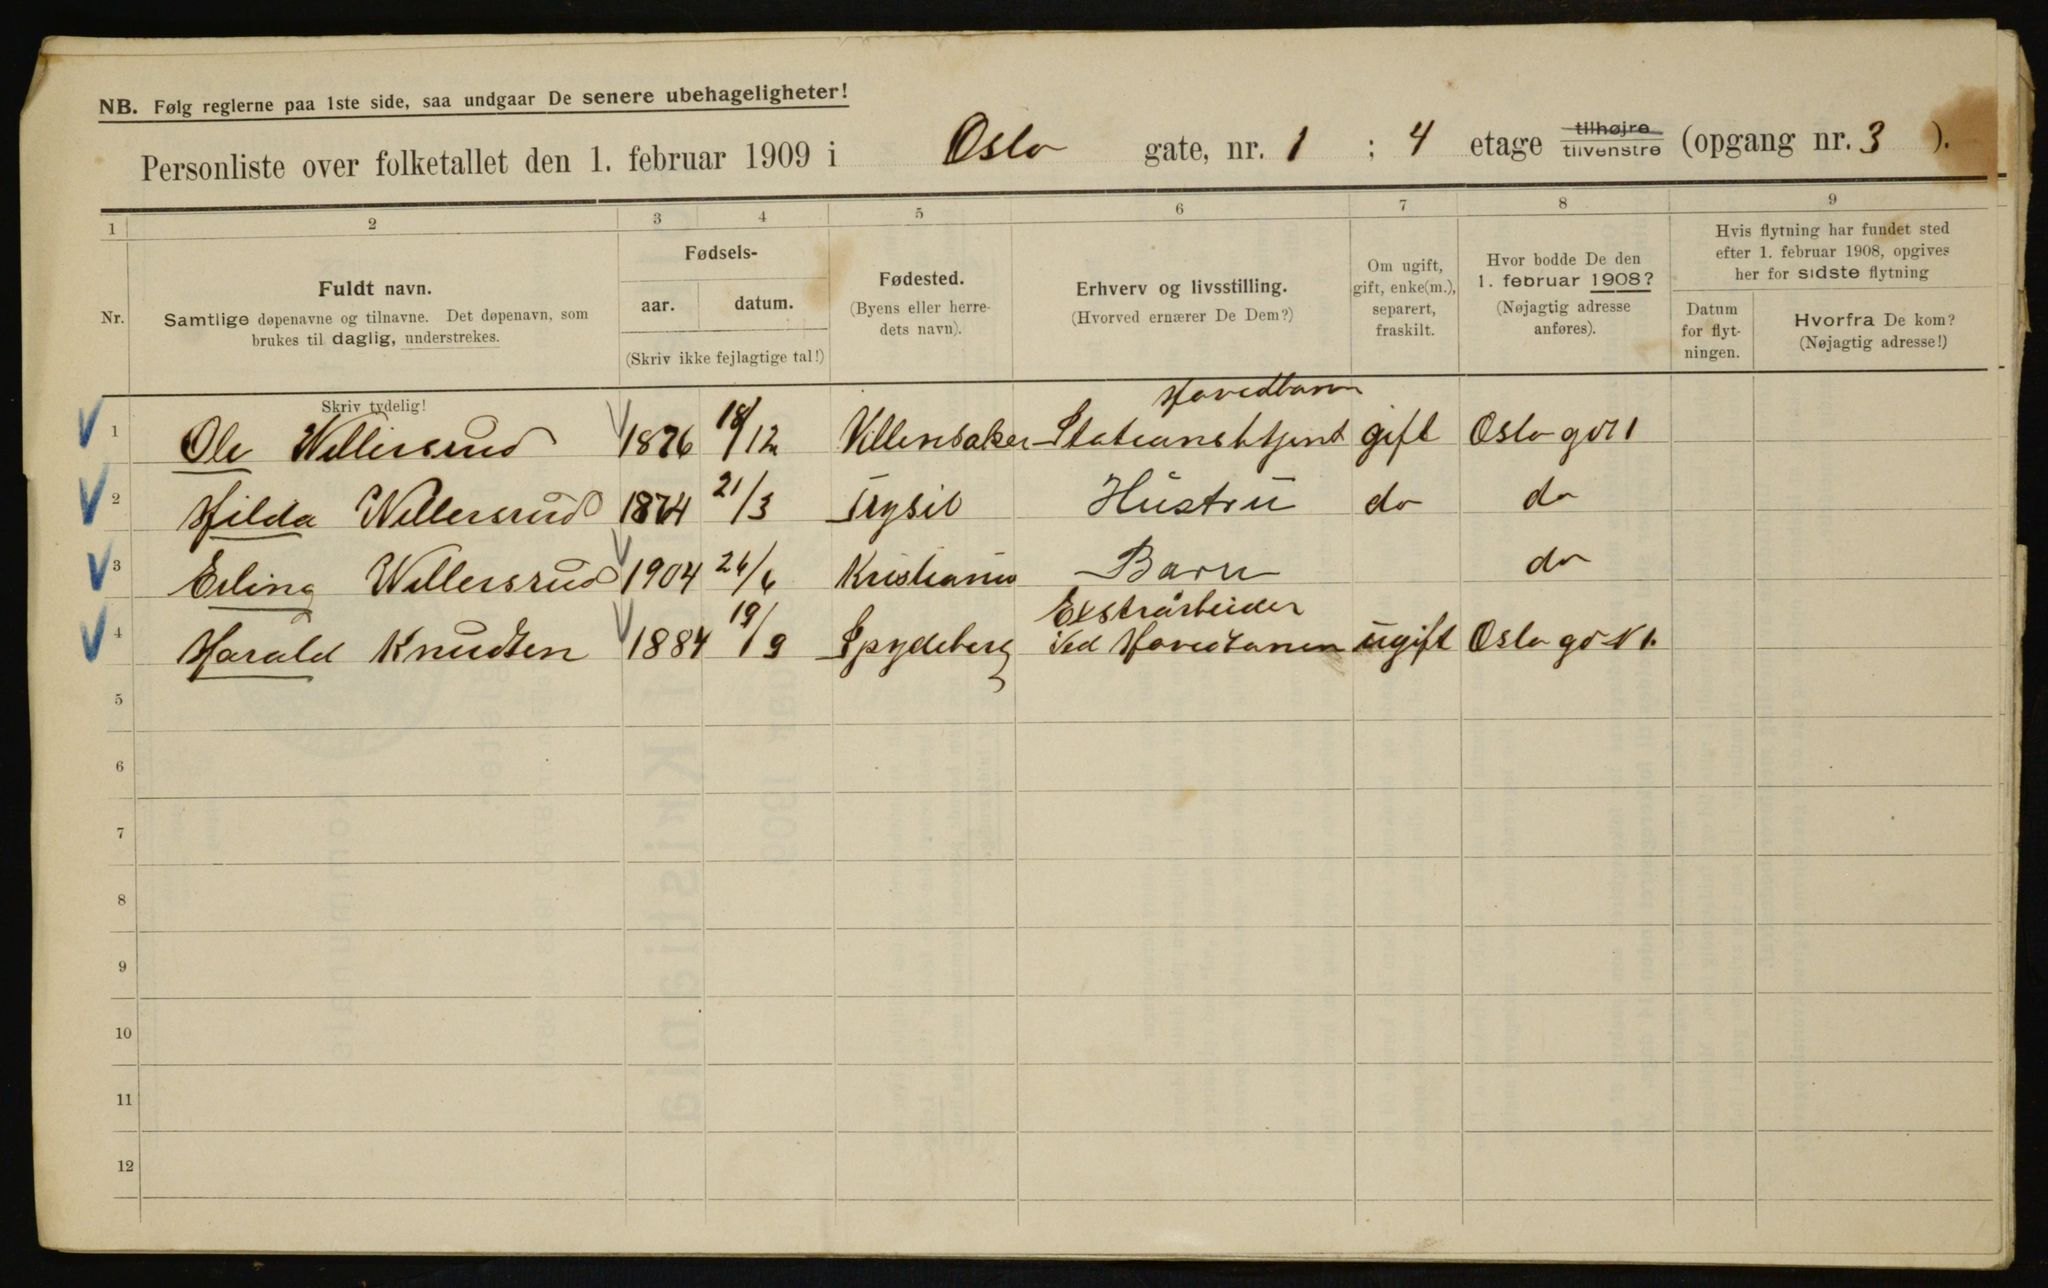 NB. Følg reglerne paa 1ste side, saa undgaar De senere ubehageligheter!
Personliste over folketallet den 1. februar 1909 i Oslo gate, nr. 1 ; 4 etage tilhøjre tilvenstre (opgang nr. 3 ).
1 2 3 4 5 6 7 8 9
Nr.
Fuldt navn.
Samtlige døpenavne og tilnavne. Det døpenavn, som
brukes til daglig, understrekes.
Skriv tydelig!
Fødsels-
aar. datum.
(Skriv ikke fejlagtige tal!)
Fødested.
(Byens eller herre-
dets navn).
Erhverv og livsstilling.
(Hvorved ernærer De Dem?)
Om ugift,
gift, enke(m.),
separert,
fraskilt.
Hvor bodde De den
1. februar 1908?
(Nøjagtig adresse
anføres).
Hvis flytning har fundet sted
efter 1. februar 1908, opgives
her for sidste flytning
Datum
for flyt-
ningen.
Hvorfra De kom?
(Nøjagtig adresse!)
Hovedban
1 Ole Willersrud 1876 18/12 Ullensaker gift Oslo gd 1
2 Hilda Willersrud 1874 21/3 Trysil Hustru do do
3 Erling Willersrud 1904 26/6 Kristiania Barn do
Exstrarbeider
4 Harald Knudsen 1884 19/9 Spydeberg Ved Hovedbanen ugift Oslo gd N 1.
5
6
7
8
9
10
11
12